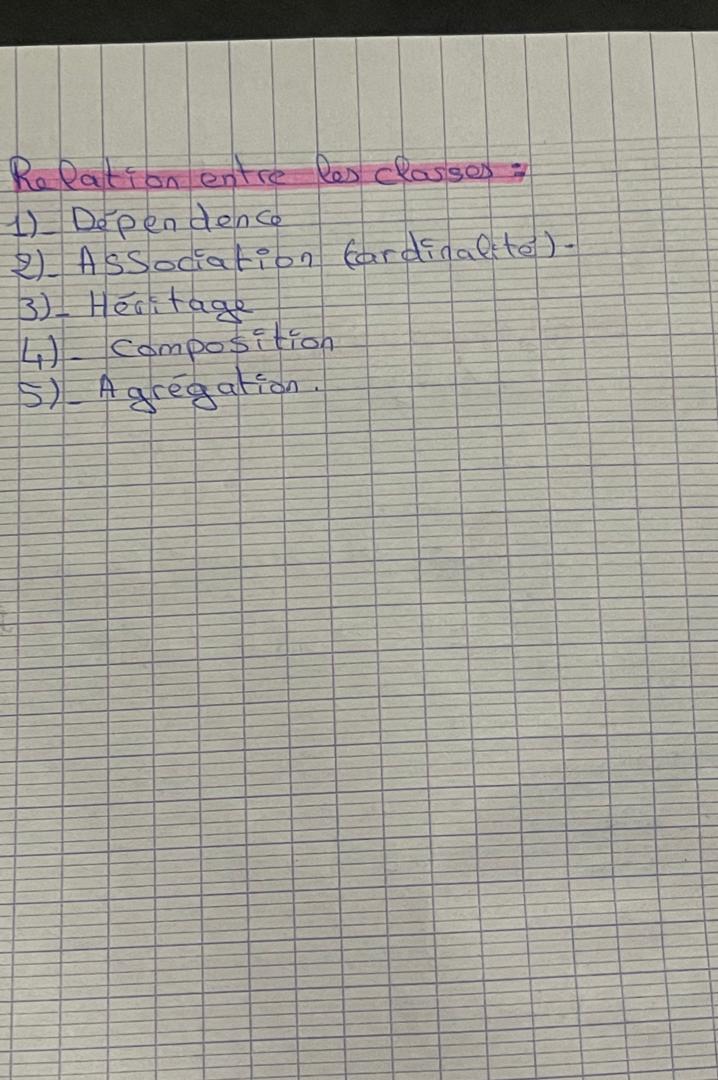 Relation entre les classes :
1)_ Dépendence
2)_ Association (cardinalité)-
3)_ Héritage
4)_ Composition
5)_ Agrégation.